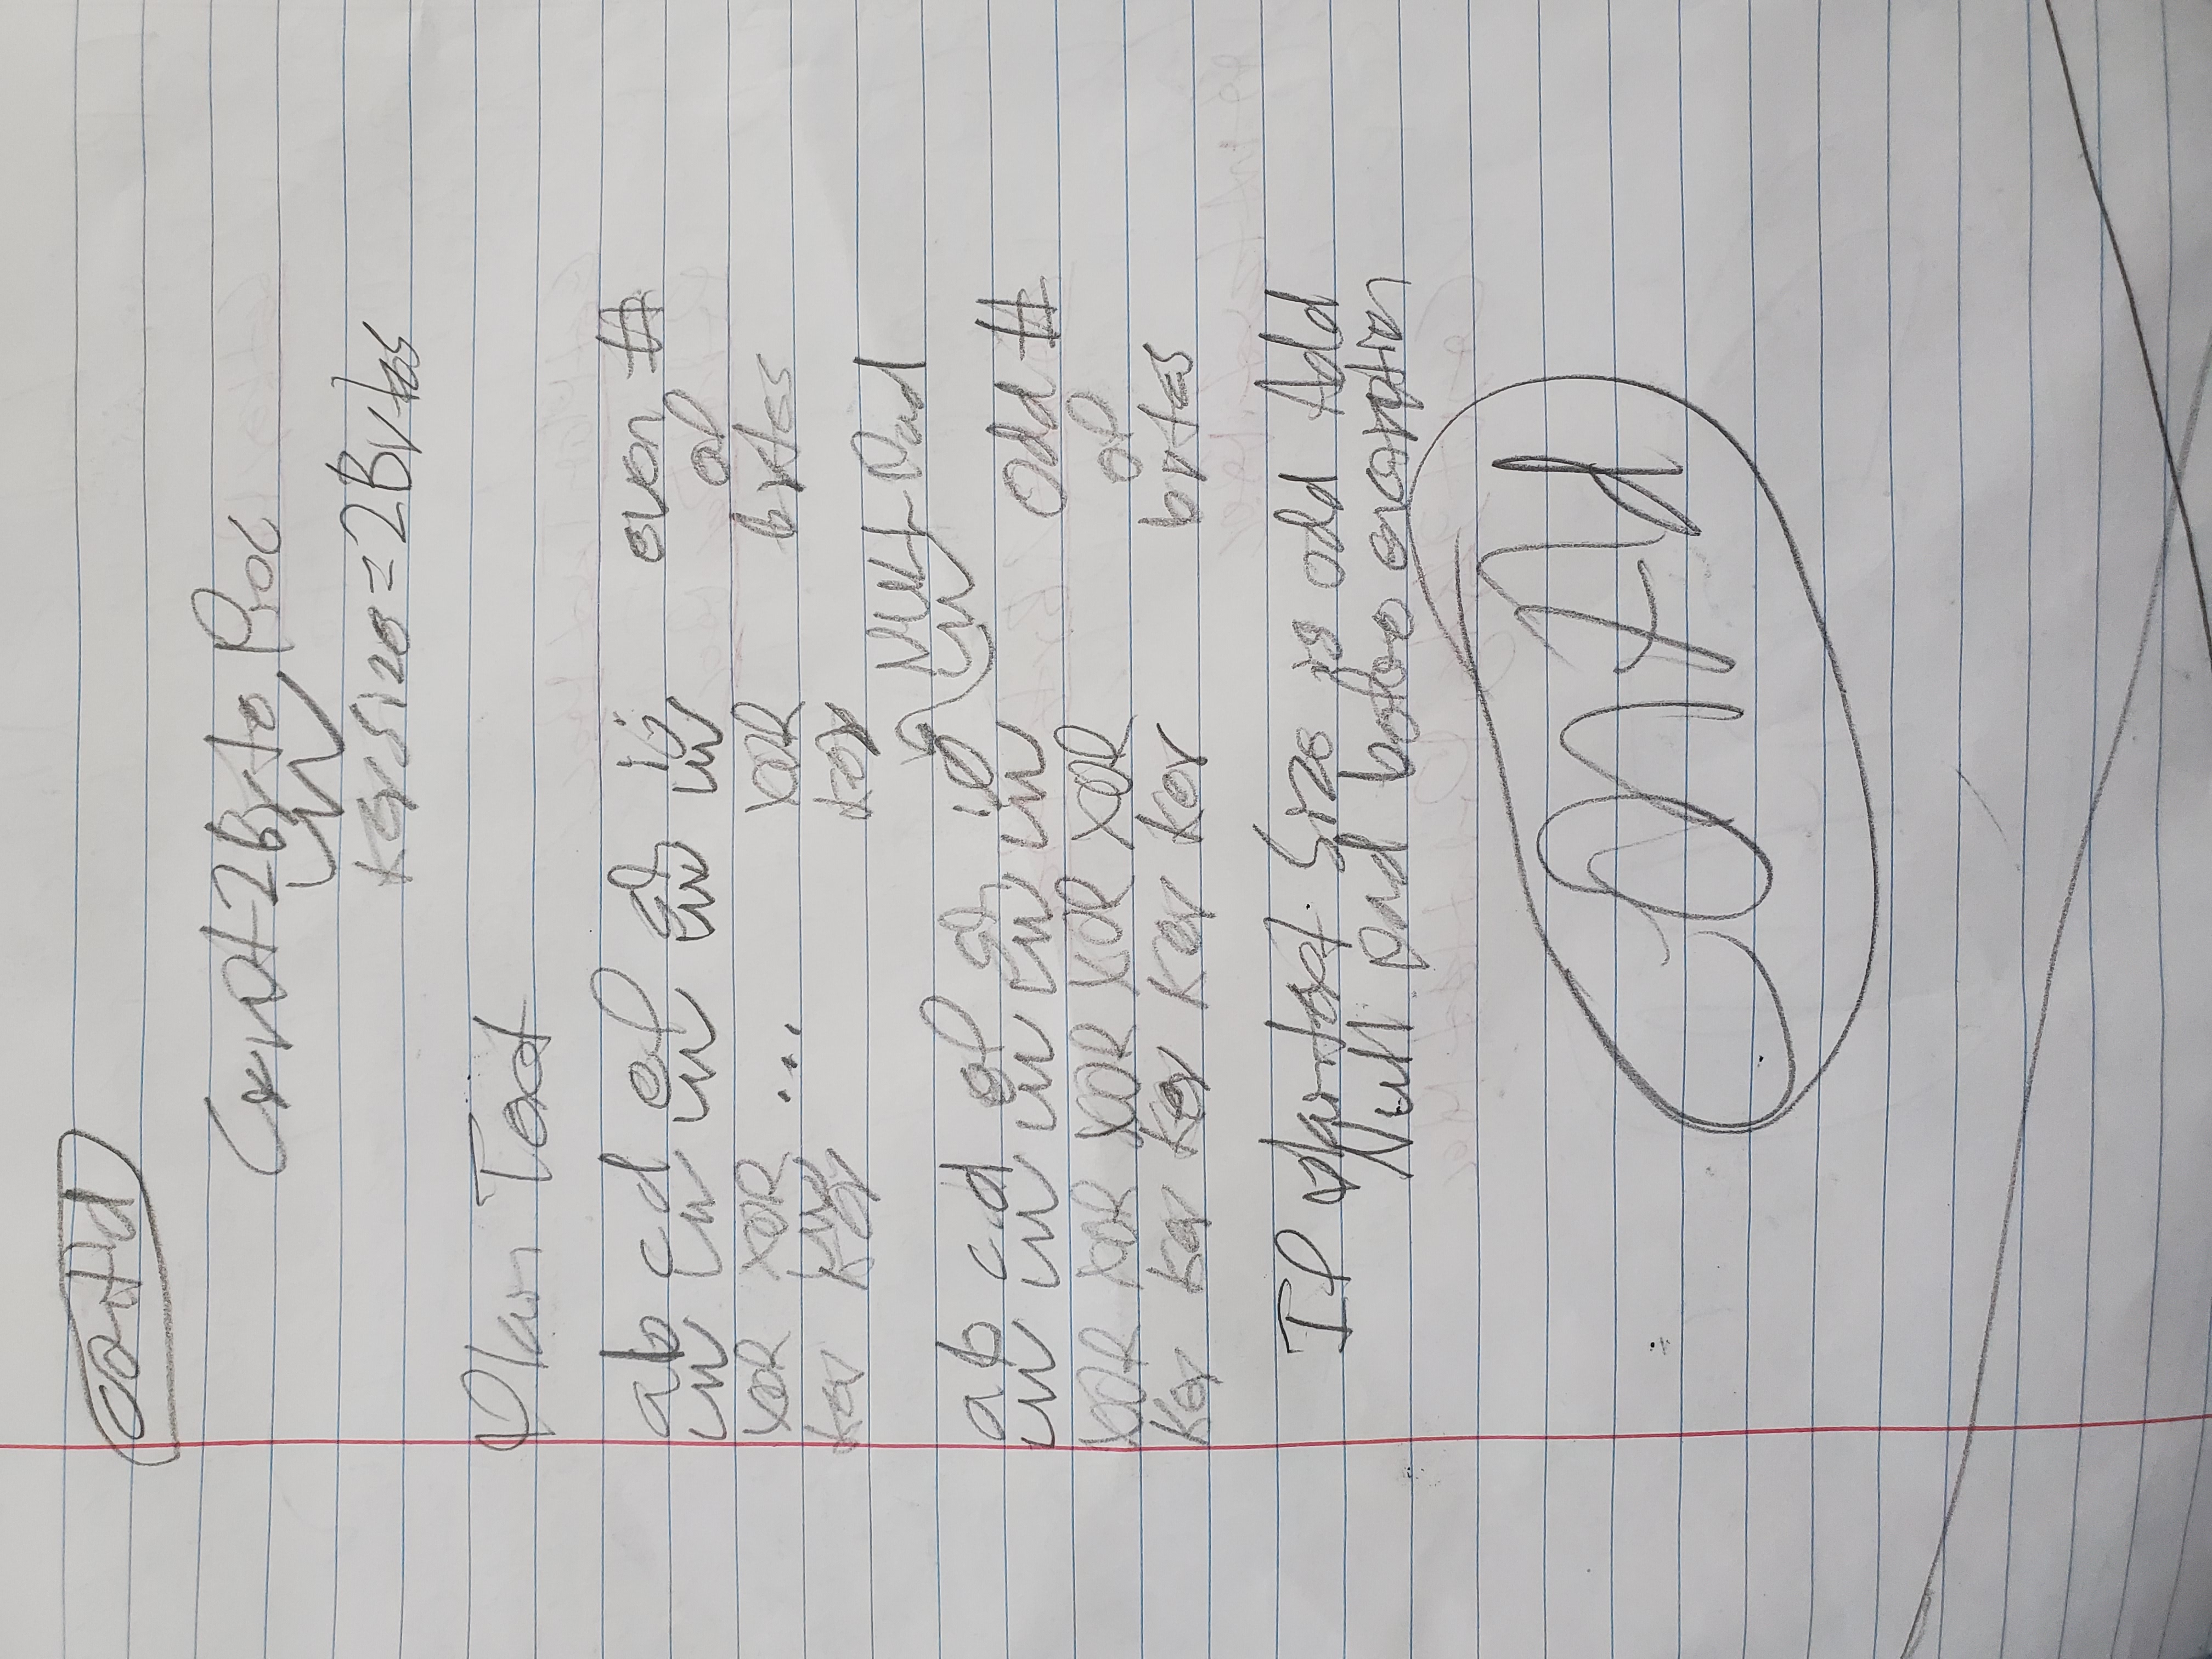 Cont'd
Crypt2Byte Proc
Key Size = 2Bytes
Plain Text
ab cd ef gh ij even #
of
XOR XOR ... XOR bytes
Key Key Key
NULL Pad
ab cd ef gh i0
Odd #
XOR XOR XOR XOR XOR of
Key Key Key Key Key bytes
If plaintext size is odd Add
Null pad before encryption
Cont'd